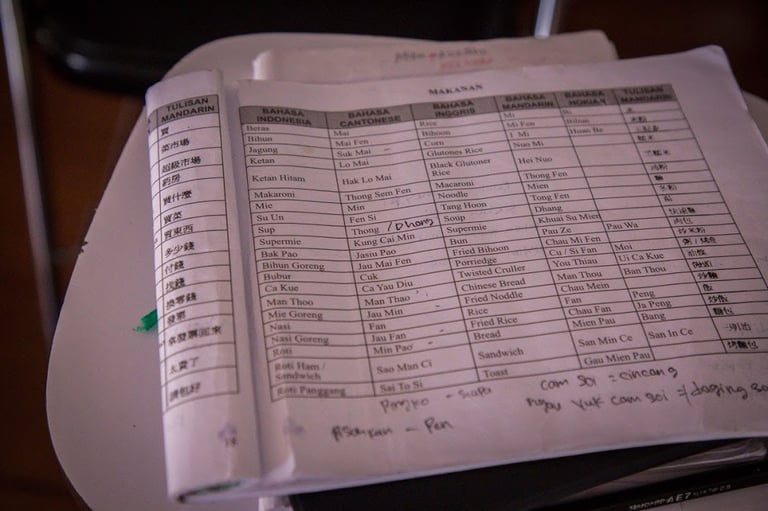 TULISAN MANDARIN
買
菜市場
超級市場
藥房
買什麼
買菜
買東西
多少錢
付錢
找錢
換零錢
發票
拿發票回來
太貴了
請包好
MAKANAN
BAHASA INDONESIA BAHASA CANTONESE BAHASA INGGRIS BAHASA MANDARIN BAHASA HOKIAN TULISAN MANDARIN
Beras Mai Rice Mi Bi 米
Bihun Mai Fen Bihoon Mi Fen Bihun 米粉
Jagung Suk Mai Corn I Mi Huan Be
Ketan Lo Mai Glutones Rice Nuo Mi 糯米
Ketan Hitam Hak Lo Mai Black Glutoner Rice Hei Nuo
Makaroni Thong Sem Fen Macaroni Thong Fen
Mie Min Noodle Mien 麵
Su Un Fen Si Tang Hoon Tong Fen
Sup Thong / Dhong Soup Dhang
Supermie Kung Cai Min Supermie Khuai Su Mien
Bak Pao Jasiu Pao Bun Pau Ze Pau Wa
Bihun Goreng Jau Mai Fen Fried Bihoon Chau Mi Fen 炒米粉
Bubur Cuk Porriedge Cu / Si Fan Moi
Ca Kue Ca Yau Diu Twisted Cruller You Thau Ui Ca Kue
Man Thoo Man Thao Chinese Bread Man Thou Ban Thou
Mie Goreng Jau Min Fried Noddle Chau Mein 炒麵
Nasi Fan Rice Fan Peng 飯
Nasi Goreng Jau Fan Fried Rice Chau Fan Ja Peng 炒飯
Roti Min Pao Bread Mien Pau Bang 麵包
Roti Ham / Sandwich Sao Man Ci Sandwich San Min Ce San In Ce
Roti Panggang Sai To Si Toast Gau Mien Pau 烤麵包
cam soi = cincang
ngau yuk cam soi = daging
Pen